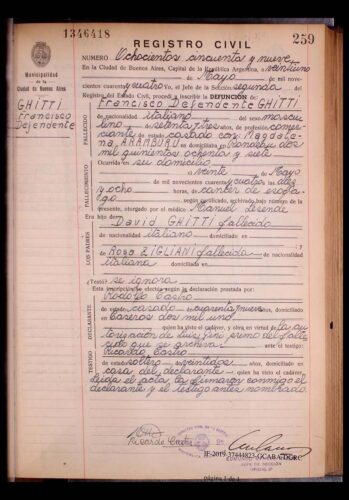 1346418
259
REGISTRO CIVIL
Municipalidad
de la
Ciudad de Buenos Aires
GHITTI
Francisco
Defendente
NUMERO Ochocientos cincuenta y nueve
En la Ciudad de Buenos Aires, Capital de la República Argentina, a veintiuno
de Mayo de mil nove-
cientos cuarenta y cuatro Yo, el Jefe de la Sección segunda del
Registro del Estado Civil, procedí a inscribir la DEFUNCIÓN de:
Francisco Defendente GHITTI
FALLECIDO
de nacionalidad italiano del sexo mascu
lino de setenta y tres años, de profesión comer-
ciante de estado casado con Magdale-
na ARAMBURU domiciliado en
mil quinientos ochenta y siete
FALLECIMIENTO
Ocurrida en su domicilio
el veinte de Mayo
de mil novecientos cuarenta y cuatro, a las diez
y ocho horas, de cáncer de esófa-
go según certificado, archivado bajo número de la
presente, otorgado por el médico Manuel
LOS PADRES
Era hijo de
David GHITTI fallecido
de nacionalidad italiano domiciliado en
y de
Rosa ZIGLIANI fallecida
de nacionalidad italiana domiciliada en
¿Testó? se ignora
Esta inscripción se efectúa según la declaración prestada por:
DECLARANTE
Rodolfo Castro
de estado casado de cuarenta y nueve años, domiciliado
en Caseros dos mil uno
quien ha visto el cadáver, y obra en virtud de la au
torización de Luis yerno del falle
cido que se archiva ante el testigo:
TESTIGO
Ricardo Castro
de estado soltero de veintidos años, domiciliado en
casa del declarante quien ha visto el cadáver
Leída el acta, la firmaron conmigo el
declarante y el testigo antes nombrado.
Ricardo Castro
JEFE DE SECCIÓN
IF-2019-37444823-GCABA-DGRC
Página 1 de 1